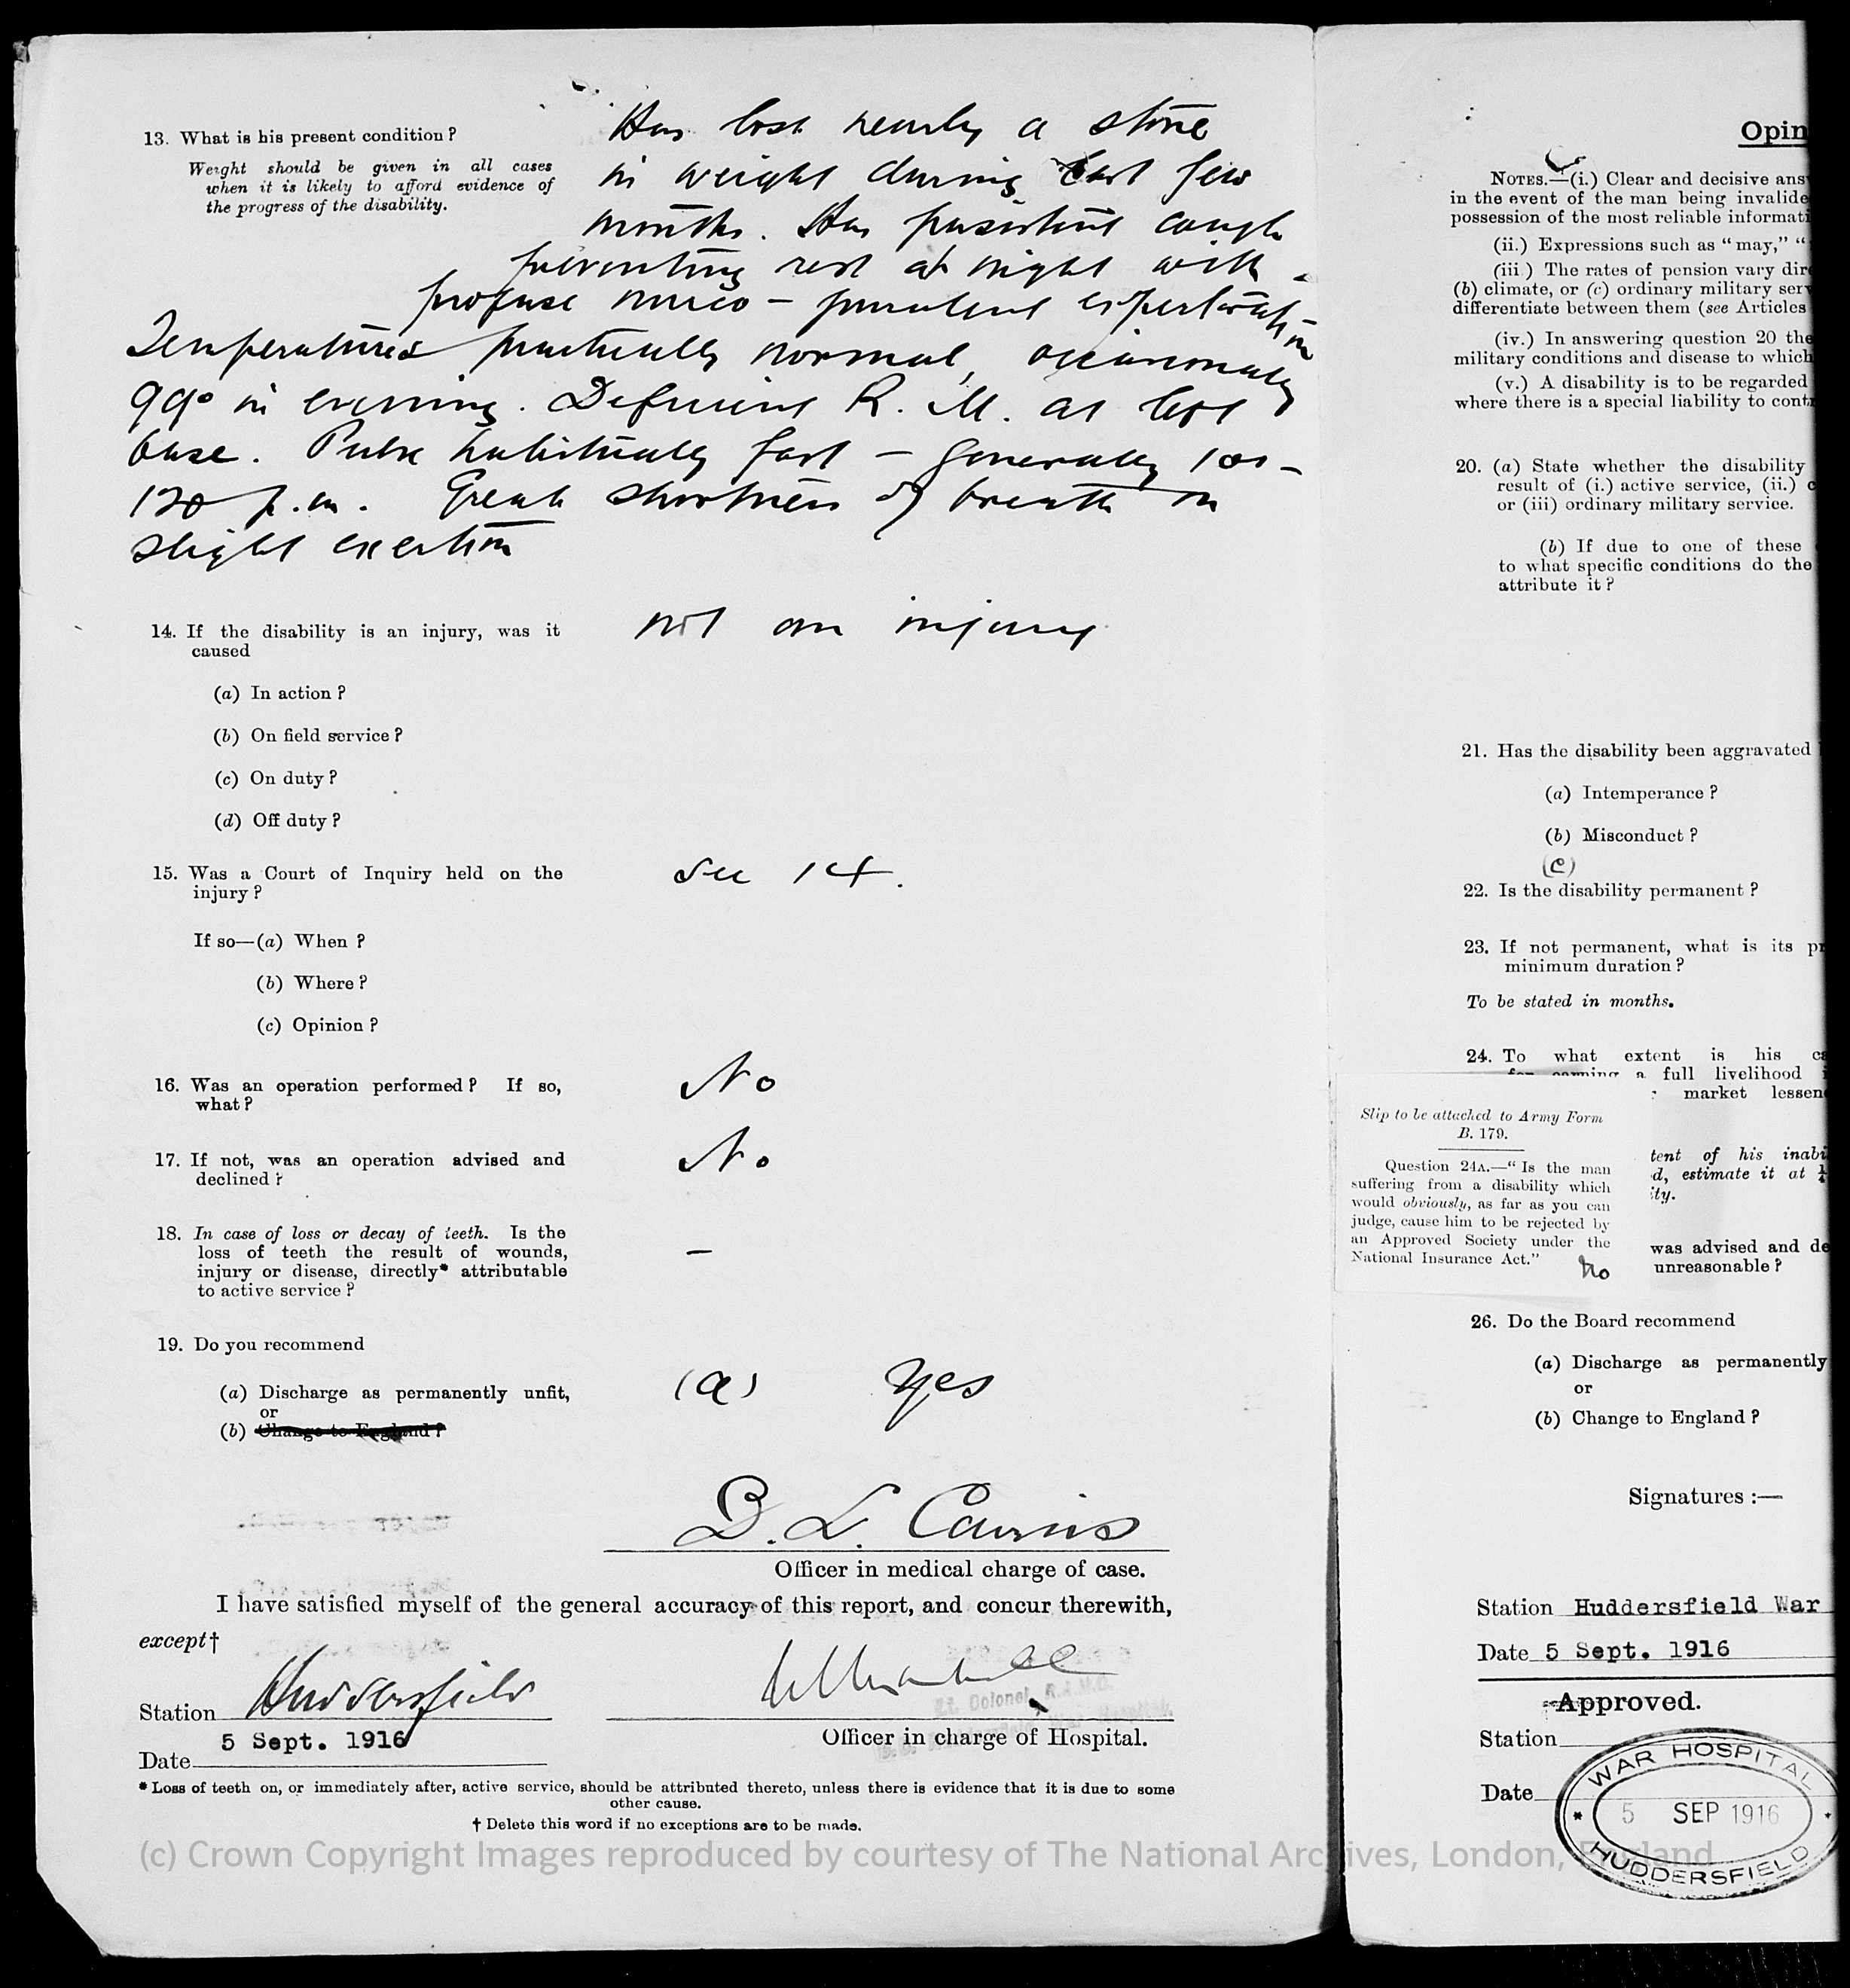 13. What is his present condition?
Weight should be given in all cases
when it is likely to afford evidence of
the progress of the disability.
Has lost nearly a stone
in weight during last few
months. Has persistent cough
preventing rest at night with
profuse muco-purulent expectoration
Temperatures practically normal, occasionally
99° in evening. Deficient R. M. at left
base. Pulse habitually fast - generally 100-
120 p.m. Great shortness of breath on
slight exertion
14. If the disability is an injury, was it
caused
not an injury
(a) In action?
(b) On field service?
(c) On duty?
(d) Off duty?
15. Was a Court of Inquiry held on the
injury?
See 14.
If so—(a) When?
(b) Where?
(c) Opinion?
16. Was an operation performed? If so,
what?
No
17. If not, was an operation advised and
declined?
No
18. In case of loss or decay of teeth. Is the
loss of teeth the result of wounds,
injury or disease, directly* attributable
to active service?
—
19. Do you recommend
(a) Discharge as permanently unfit,
or
(b) Change to England?
(a) Yes
Officer in medical charge of case.
I have satisfied myself of the general accuracy of this report, and concur therewith,
except†
Station Huddersfield
Date 5 Sept. 1916
Lt. Colonel, R.A.M.C.
Officer in charge of Hospital.
* Loss of teeth on, or immediately after, active service, should be attributed thereto, unless there is evidence that it is due to some
other cause.
† Delete this word if no exceptions are to be made.
Opin
NOTES.—(i.) Clear and decisive ans
in the event of the man being invalide
possession of the most reliable informati
(ii.) Expressions such as "may," "
(iii) The rates of pension vary dire
(b) climate, or (c) ordinary military serv
differentiate between them (see Articles
(iv.) In answering question 20 the
military conditions and disease to which
(v.) A disability is to be regarded
where there is a special liability to contr
20. (a) State whether the disability
result of (i.) active service, (ii.) c
or (iii) ordinary military service.
(b) If due to one of these
to what specific conditions do the
attribute it?
21. Has the disability been aggravated
(a) Intemperance?
(b) Misconduct?
(c)
22. Is the disability permanent?
23. If not permanent, what is its pr
minimum duration?
To be stated in months.
24. To what extent is his ca
for earning a full livelihood i
market lessen
Slip to be attached to Army Form
B. 179.
Question 24A.—"Is the man
suffering from a disability which
would obviously, as far as you can
judge, cause him to be rejected by
an Approved Society under the
National Insurance Act."
No
tent of his inabi
d, estimate it at ¼
ity.
was advised and de
unreasonable?
26. Do the Board recommend
(a) Discharge as permanently
or
(b) Change to England?
Signatures :—
Station Huddersfield War
Date 5 Sept. 1916
Approved.
Station
Date
WAR HOSPITAL
5 SEP 1916
HUDDERSFIELD
(c) Crown Copyright Images reproduced by courtesy of The National Archives, London, England